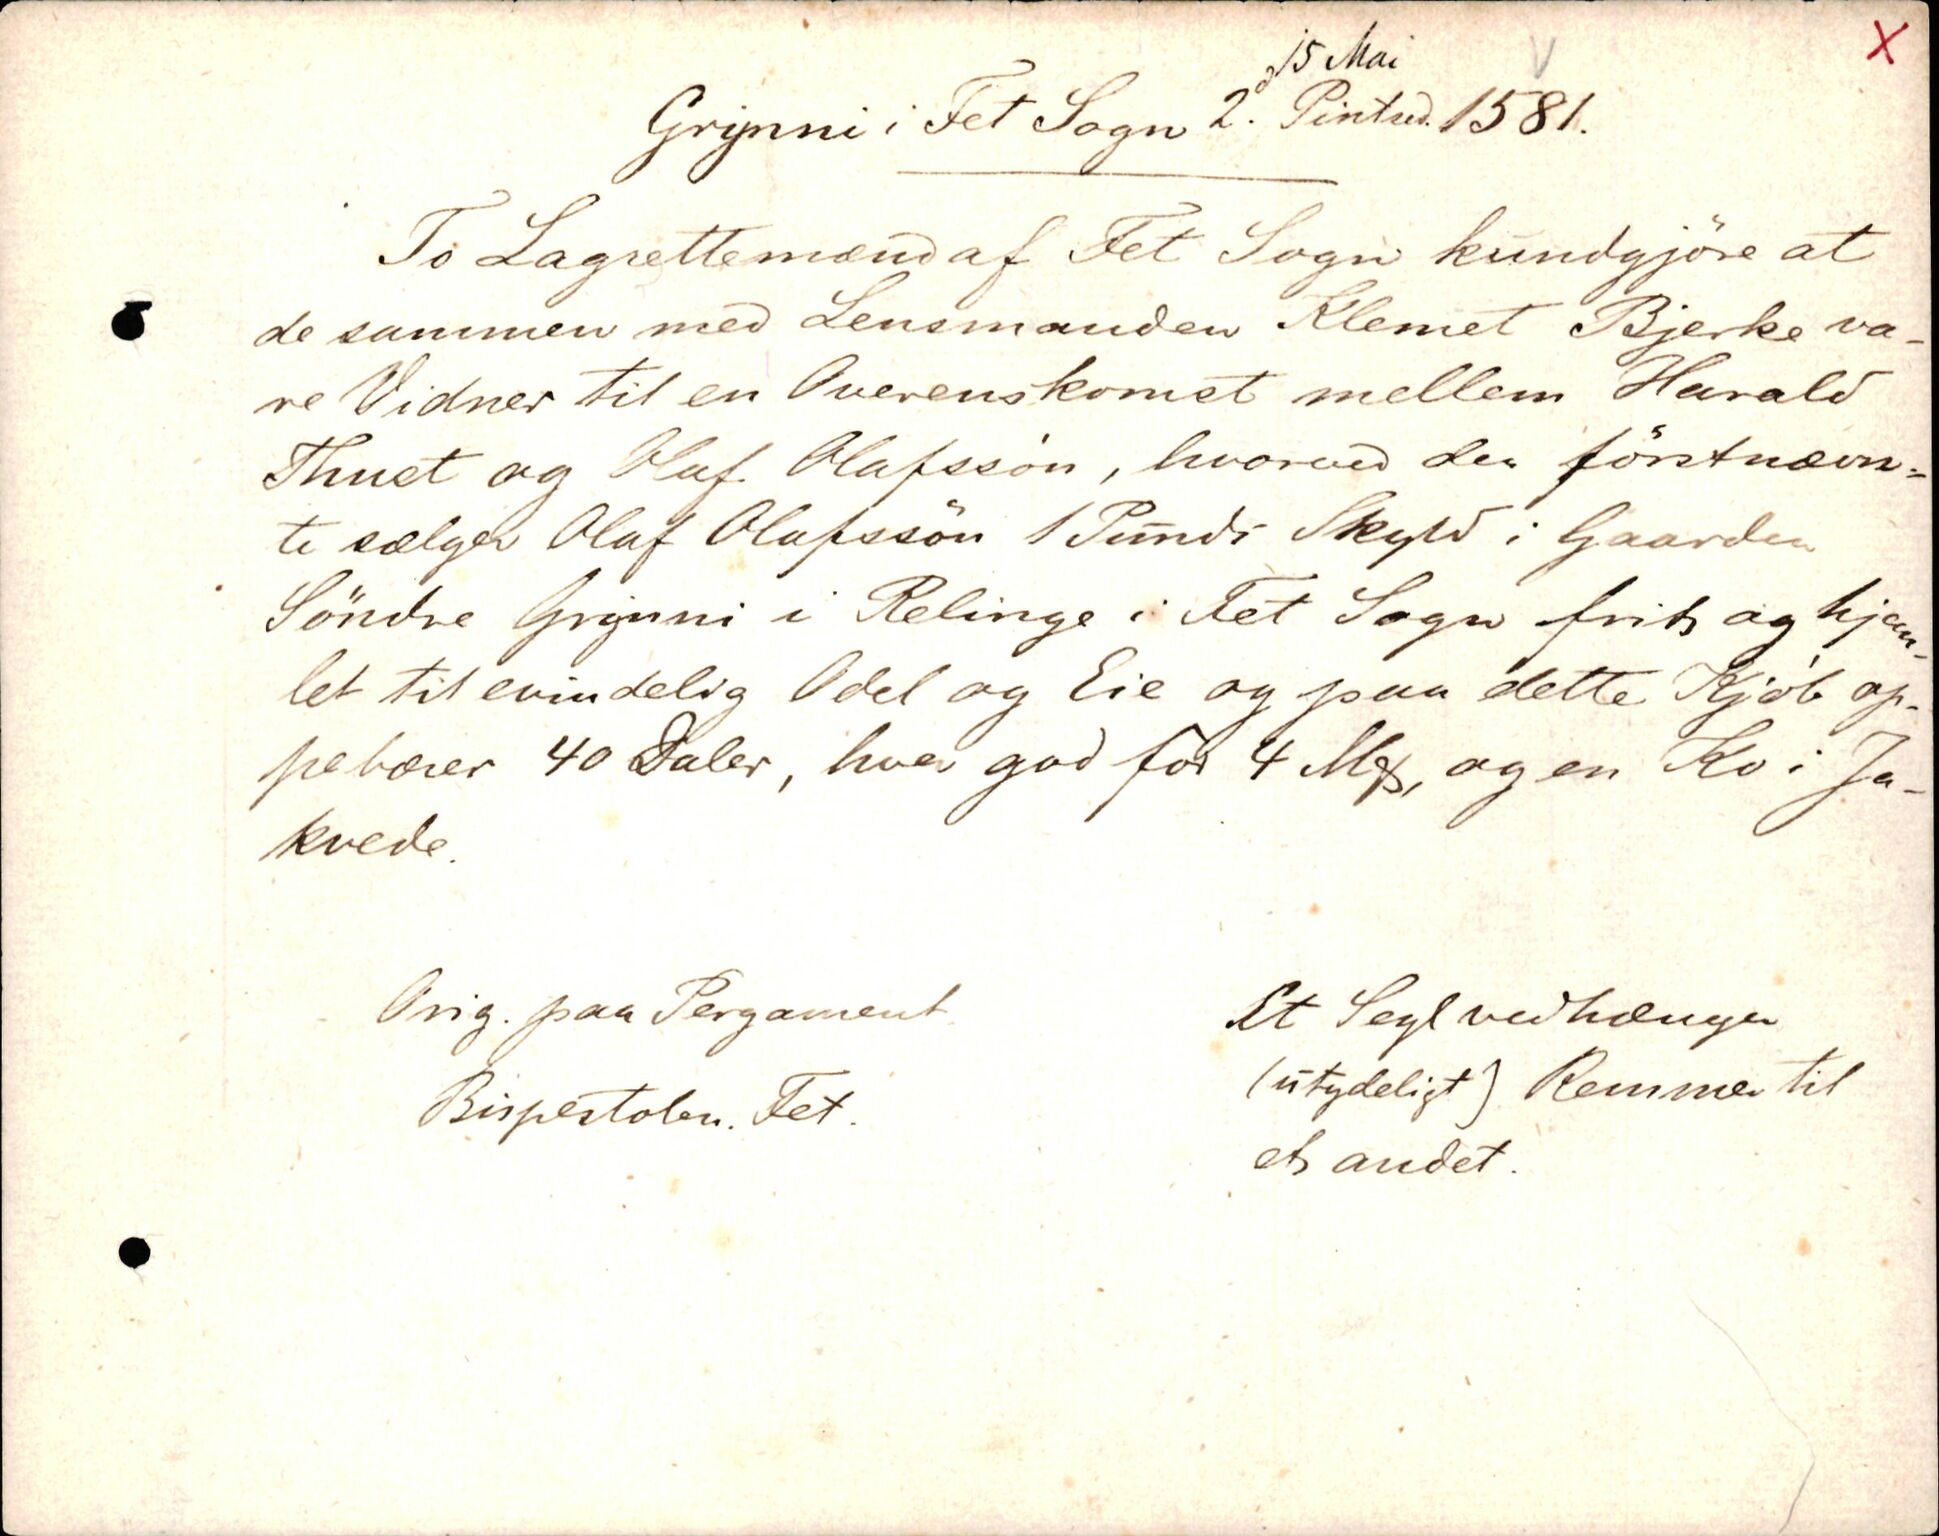 15 Mai
Grijnni i Fet Sogn 2. d Pintsed. 1581.
To Lagrettemænd af Fet Sogn kundgjöre at
de sammen med Lensmanden Klemet Bjerke va-
re Vidner til en Overenskomst mellem Harald
Thuet og Oluf Olafssön, hvorved den förstnævn-
te sælger Olaf Olafssön 1 Punds Skyld i Gaarden
Söndre Grijnni i Relinge i Fet Sogn frit og hjem-
let til evindelig Odel og Eie og paa dette Kjöb op-
pebærer 40 Daler, hver god for 4 Mk, og en Ko i Ja-
kvede.
Orig. paa Pergament
Bispestolen. Fet.
Et Segl vedhænger
(utydeligt) Remmer til
et andet.